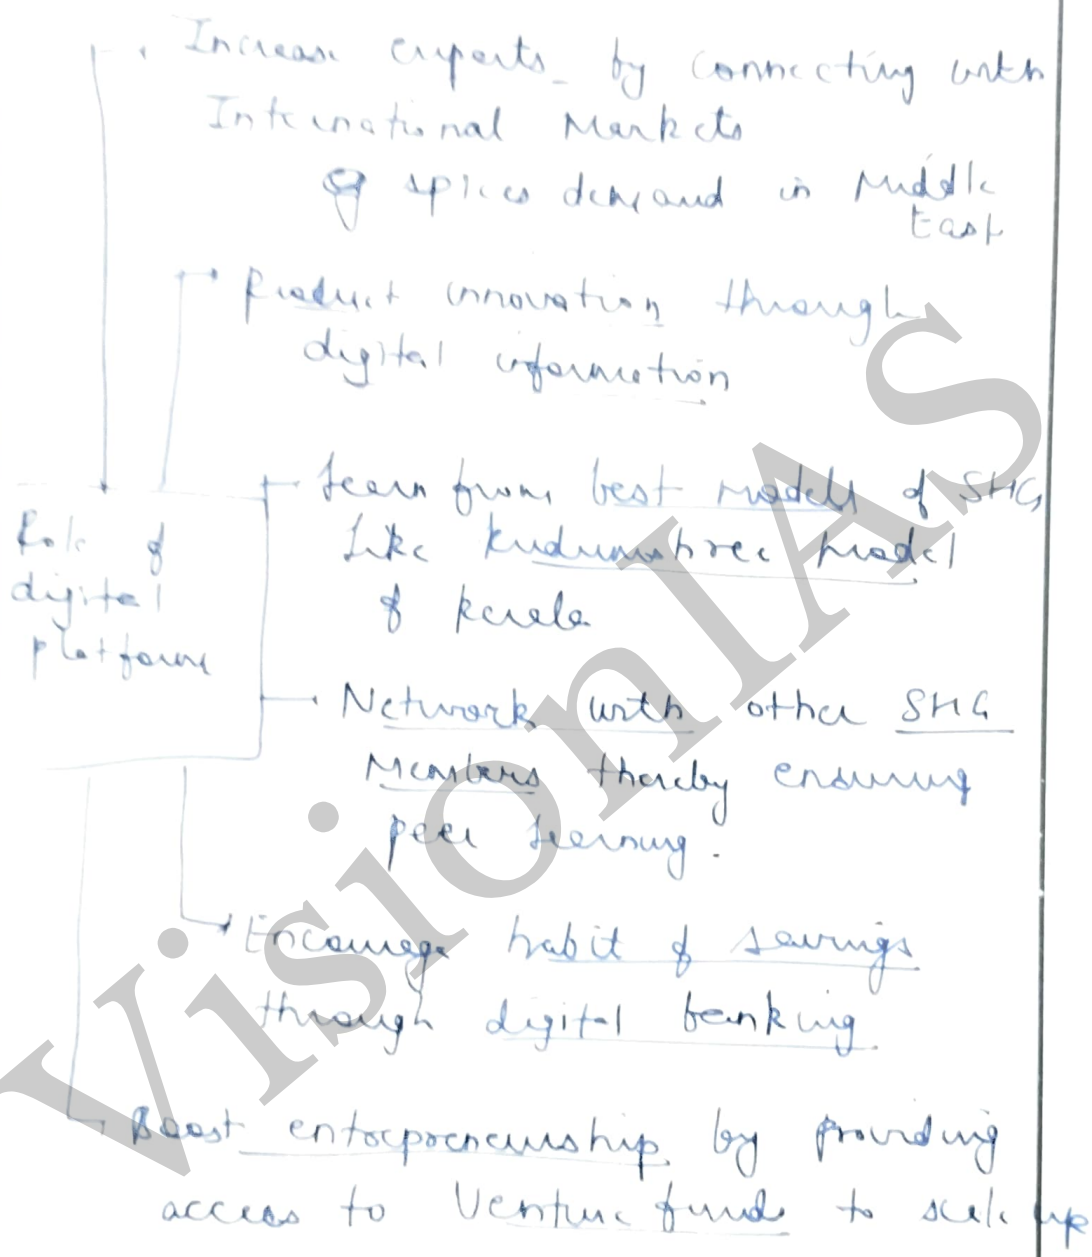 Increase exports by connecting with
International Markets
eg spices demand in Middle
East
Product innovation through
digital information
Learn from best models of SHG
Like Kudumshree model
of Kerala
Role of
digital
platform
Network with other SHG
Members thereby ensuring
peer learning.
Encourage habit of savings
through digital banking
Boost entrepreneurship by providing
access to Venture funds to scale up
VisionIAS